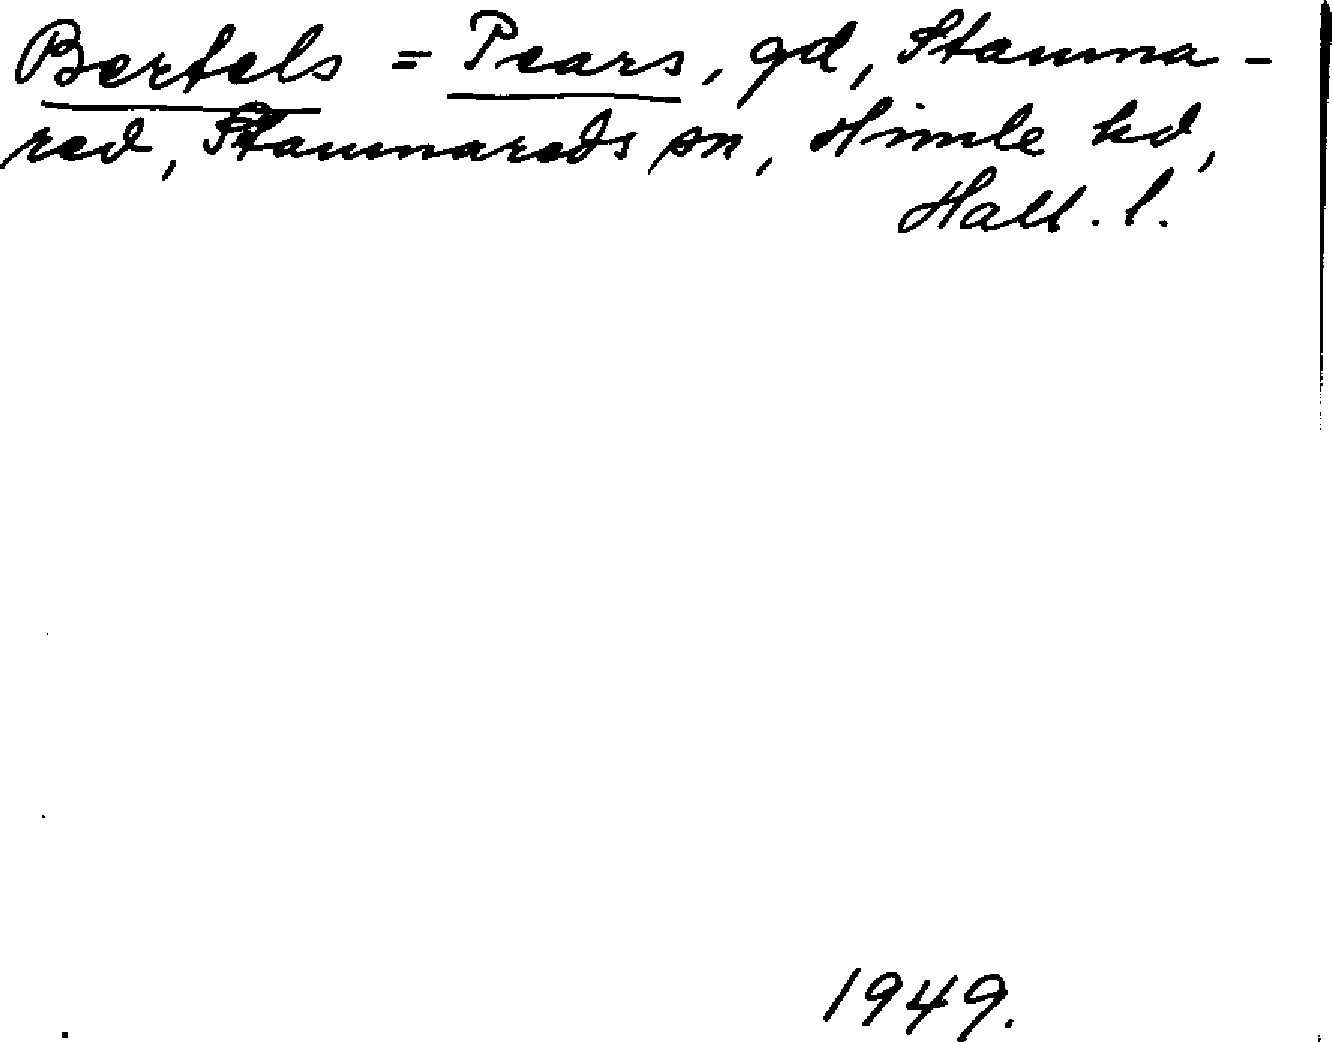 Bertels = Pears, gd, Stamna-
red, Stamnareds sn, Himle hd,
Hall. l.
1949.